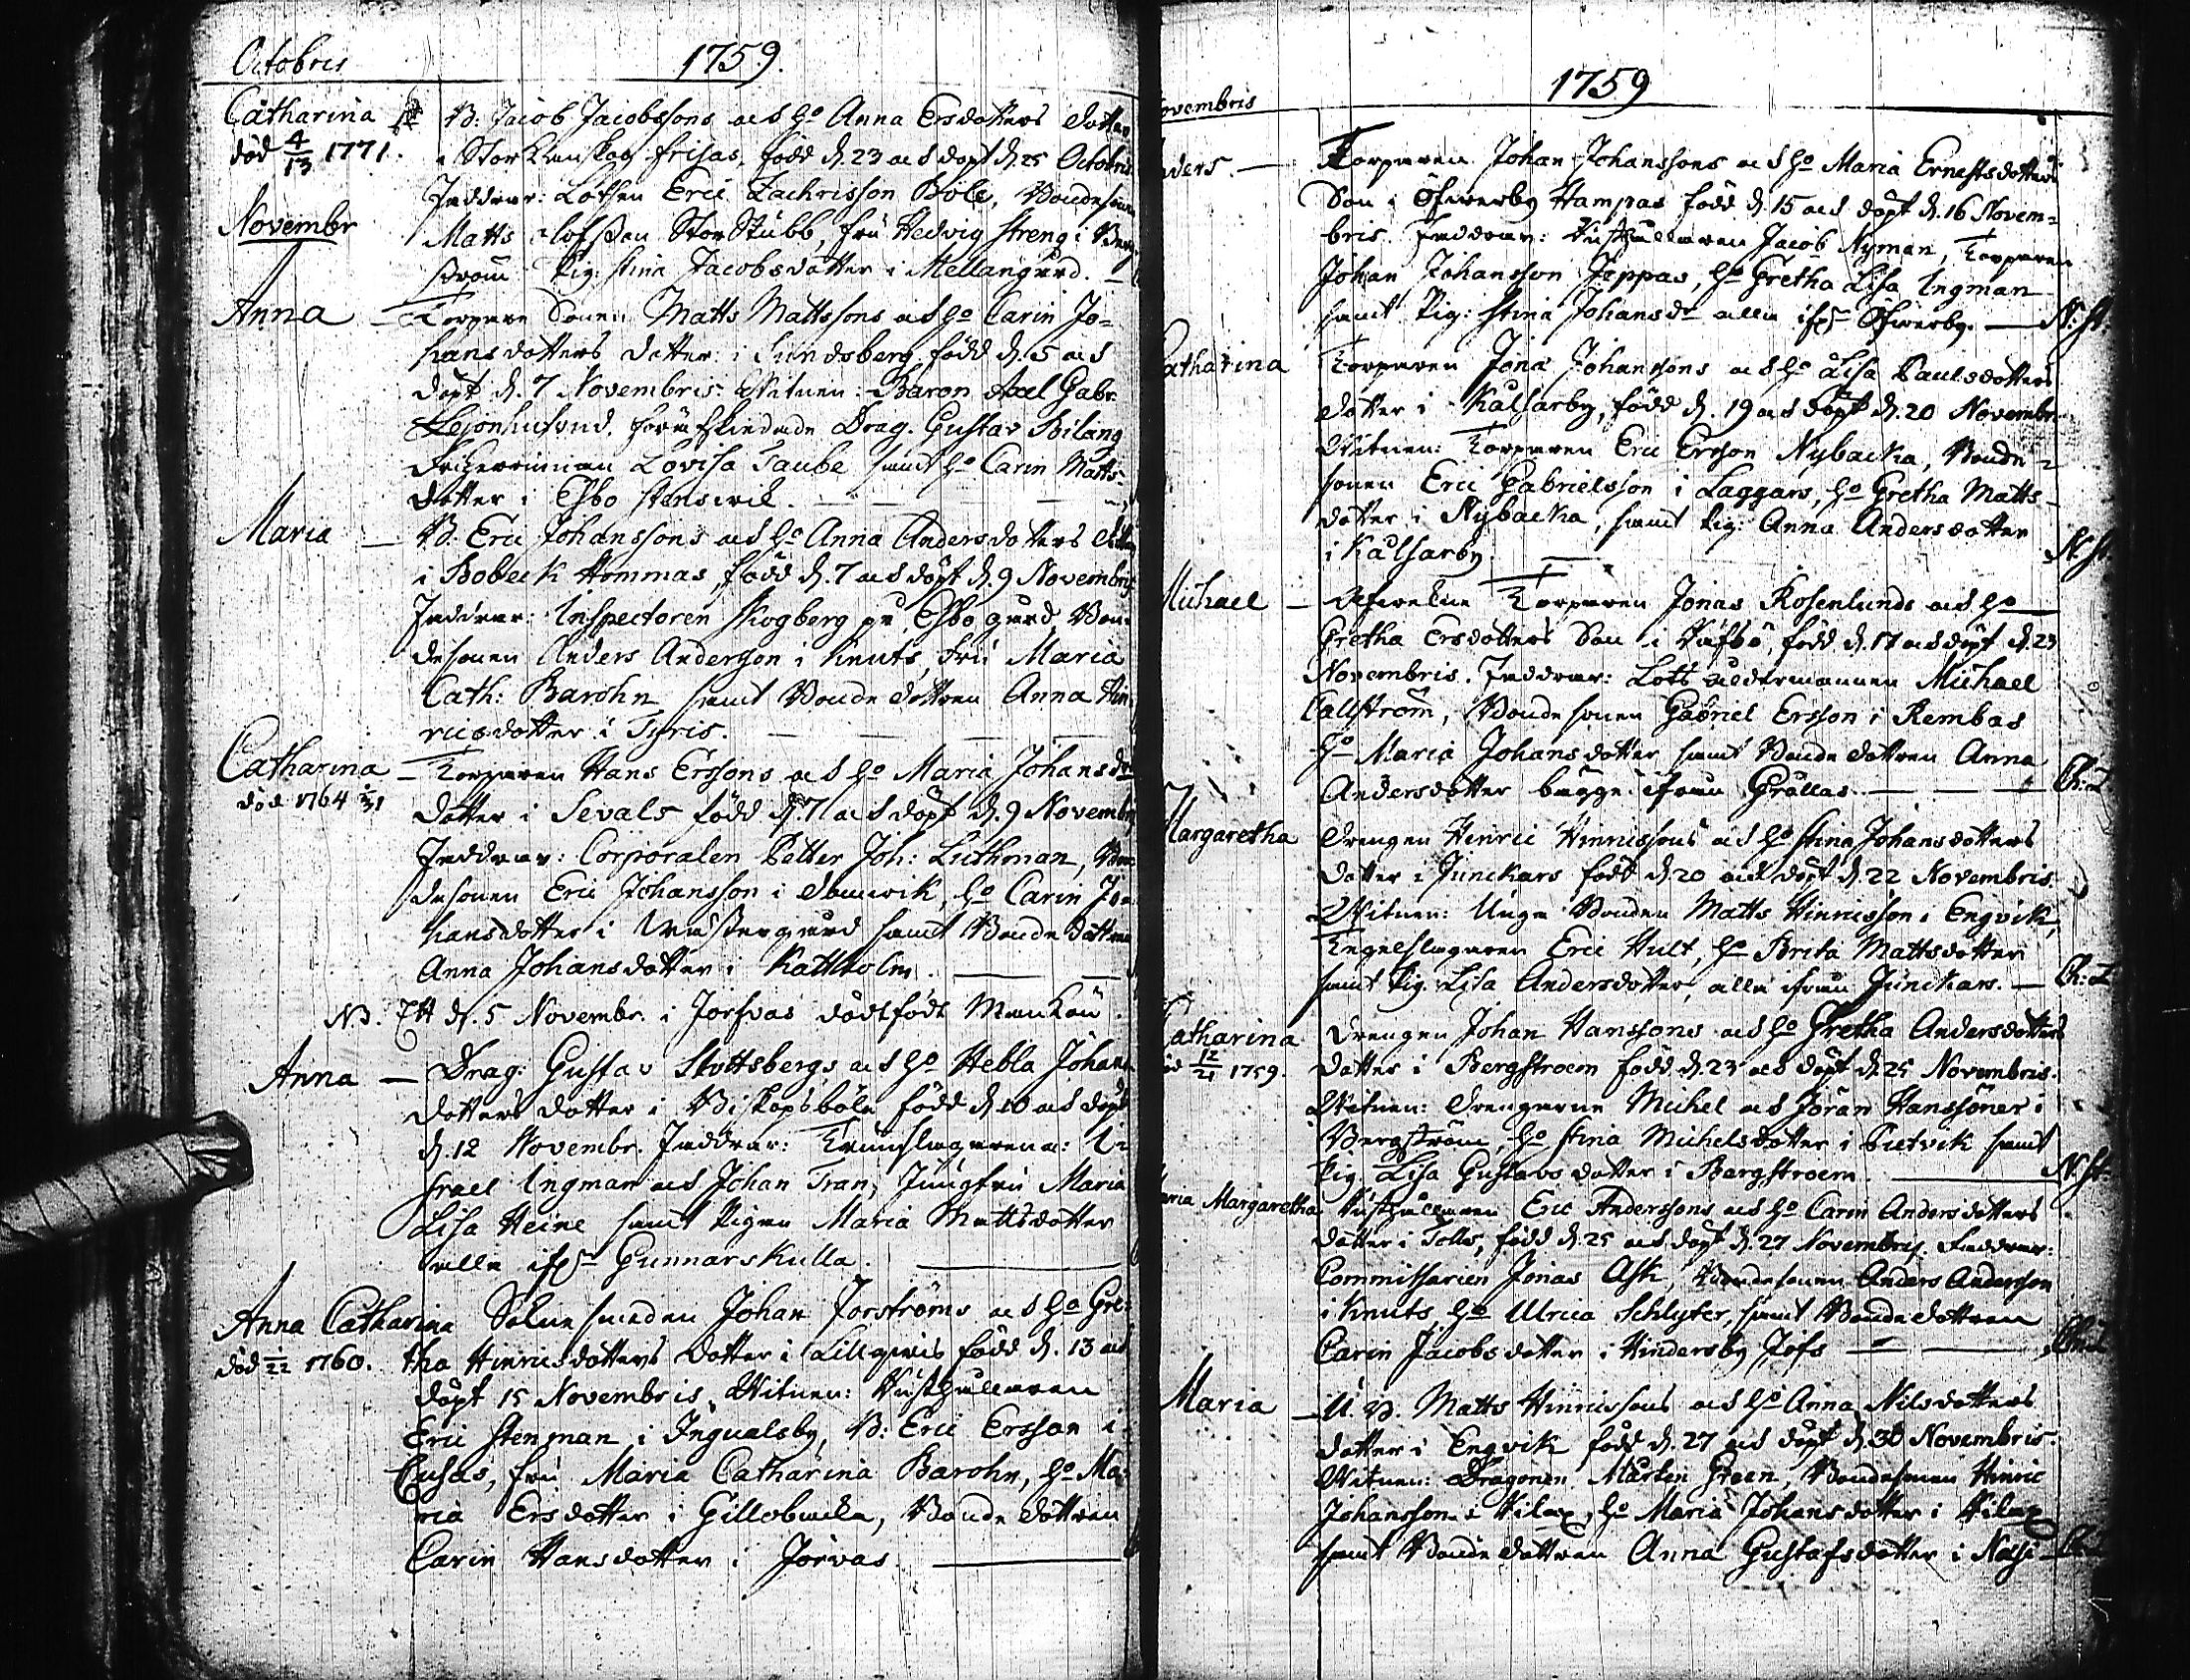 Octobris 1759.
Catharina B: Jacob Jacobssons och h:o Anna Ersdotters dotter
död 4/13 1771. i Stor Kanskog frisas, född d. 23 och döpt d. 25 Octobris
Faddrar: Lotsen Eric Zachrisson Bole, Bondesonen
Novembr Matts Olofsson Stor Stubb, fru Hedvig Streng i Berg
ström Pig: Stina Jacobsdotter i Mellangård.
Anna — Torpare Sonen Matts Mattssons och h:o Carin Jo=
hansdotters dotter i Sundsberg född d. 5 och
döpt d. 7 Novembris. Witnen: Baron Axel Gabr.
Lejonhufvud, Drag. Gustav Bilang
Friherrinnan Lovisa Taube samt h:o Carin Matts-
dotter i Esbo stenswik.
Maria — B. Eric Johanssons och h:o Anna Andersdotters dotter
i Bobeck Hommas, född d. 7 och döpt d. 9 Novembris
Faddrar: Inspectoren Skogberg på Esbo gård, Bon=
desonen Anders Andersson i Knuts, fru Maria
Cath: Barohn samt Bonde dottren Anna Hin
ricsdotter i Tyris.
Catharina — Torparen Hans Erssons och h:o Maria Johansdr
död 1764 dotter i Sevals född d. 7 och döpt d. 9 Novembris
Faddrar: Corporalen Petter Joh: Luthman, Bon
desonen Eric Johansson i Danswik, h:o Carin Jo=
hansdotter i Wästergård samt Bonde dottren
Anna Johansdotter i Kattholm.
NB. Ett d. 5 Novembr. i Jorfvas dödfödt Mankön.
Anna — Drag: Gustav Slottsbergs och h:o Hebla Johans
dotters dotter i Biskopsböle född d. 10 och döpt
d. 12 Novembr. Faddrar: Trumslagarena: I=
srael Ingman och Johan Tran, Jungfru Maria
Lisa Heine samt Pigan Maria Mattsdotter
alla ifrn Gunnarskulla.
Anna Catharina Solne smeden Johan Forströms och h:o Gre=
död 1/22 1760. tha Hinricsdotters dotter i Lillgreis född d. 13 och
döpt 15 Novembris. Witnen: Rusthållaren
Eric Stenman i Ingvalsby, B: Eric Ersson i
Cusas, fru Maria Catharina Barohn, h:o Ma=
ria Ersdotter i Gillobacka, Bonde dottren
Carin Hansdotter i Jorvas.
1759
ovembris
nders. — Torparen Johan Johanssons och h:o Maria Ernstsdotters
Son i Öfwerby Hampas född d. 15 och döpt d. 16 Novem=
bris. Faddrar: Rusthållaren Jacob Nyman, Torparen
Johan Johansson Joppas, h:o Gretha Lisa Ingman
samt Pig: Stina Johansdr alla ifrn Öfwerby. — N: St:
atharina Torparen Jona Johanssons och h:o Lisa Paulsdotters
dotter i Kalsarby, född d. 19 och döpt d. 20 Novembr.
Witnen: Torparen Eric Ersson Nybacka, Bonde=
sonen Eric Gabrielsson i Laggars, h:o Gretha Matts=
dotter i Nybacka, samt Pig: Anna Andersdotter
i Kalsarby. — N: St
Michael — Afvekne Torparen Jonas Rosenlunds och h:o
Gretha Ersdotters Son i Räfsö, född d. 17 och döpt d. 23
Novembris. Faddrar: Lots åldermannen Michael
Callström, Bondesonen Gabriel Ersson i Rembas
h:o Maria Johansdotter samt Bonde dottren Anna
Andersdotter bägge ifrån Grållas. — Ch: L
Margaretha Drengen Hinric Hinricssons och h:o Stina Johansdotters
dotter i Junckars född d. 20 och döpt d. 22 Novembris.
Witnen: Unga Bonden Matts Hinricsson i Engvik,
Tegelslagaren Eric Hult, h:o Brita Mattsdotter
samt Pig. Lisa Andersdotter, alla ifrån Junckars. — Ch: L
atharina Drengen Johan Hanssons och h:o Gretha Andersdotters
öd 12/21 1759. dotter i Bergstroem född d. 23 och döpt d. 25 Novembris.
Witnen: Drengarne Michel och Jöran Hanssöner i
Bergström, h:o Stina Michelsdotter i Pietvik samt
Pig. Lisa Gustavsdotter i Bargstroem. — N: St:
aria Margaretha Rusthållaren Eric Anderssons och h:o Carin Andersdotters
dotter i Tolls, född d. 25 och döpt d. 27 Novembris. Faddrar:
Commissarien Jonas Ask, Bondesonen Anders Andersson
i Knuts, h:o Ulrica Schlyter, samt Bondedottren
Carin Jacobsdotter i Hindersby Jofs — Ch: L
Maria — U. B. Matts Hinricssons och h:o Anna Nilsdotters
dotter i Engvik född d. 27 och döpt d. 30 Novembris.
Witnen: Dragonen Mårten Green, Bondesonen Hinric
Johansson i Vilax, h:o Maria Johansdotter i Vilax
samt Bondedottren Anna Gustafsdotter i Näse